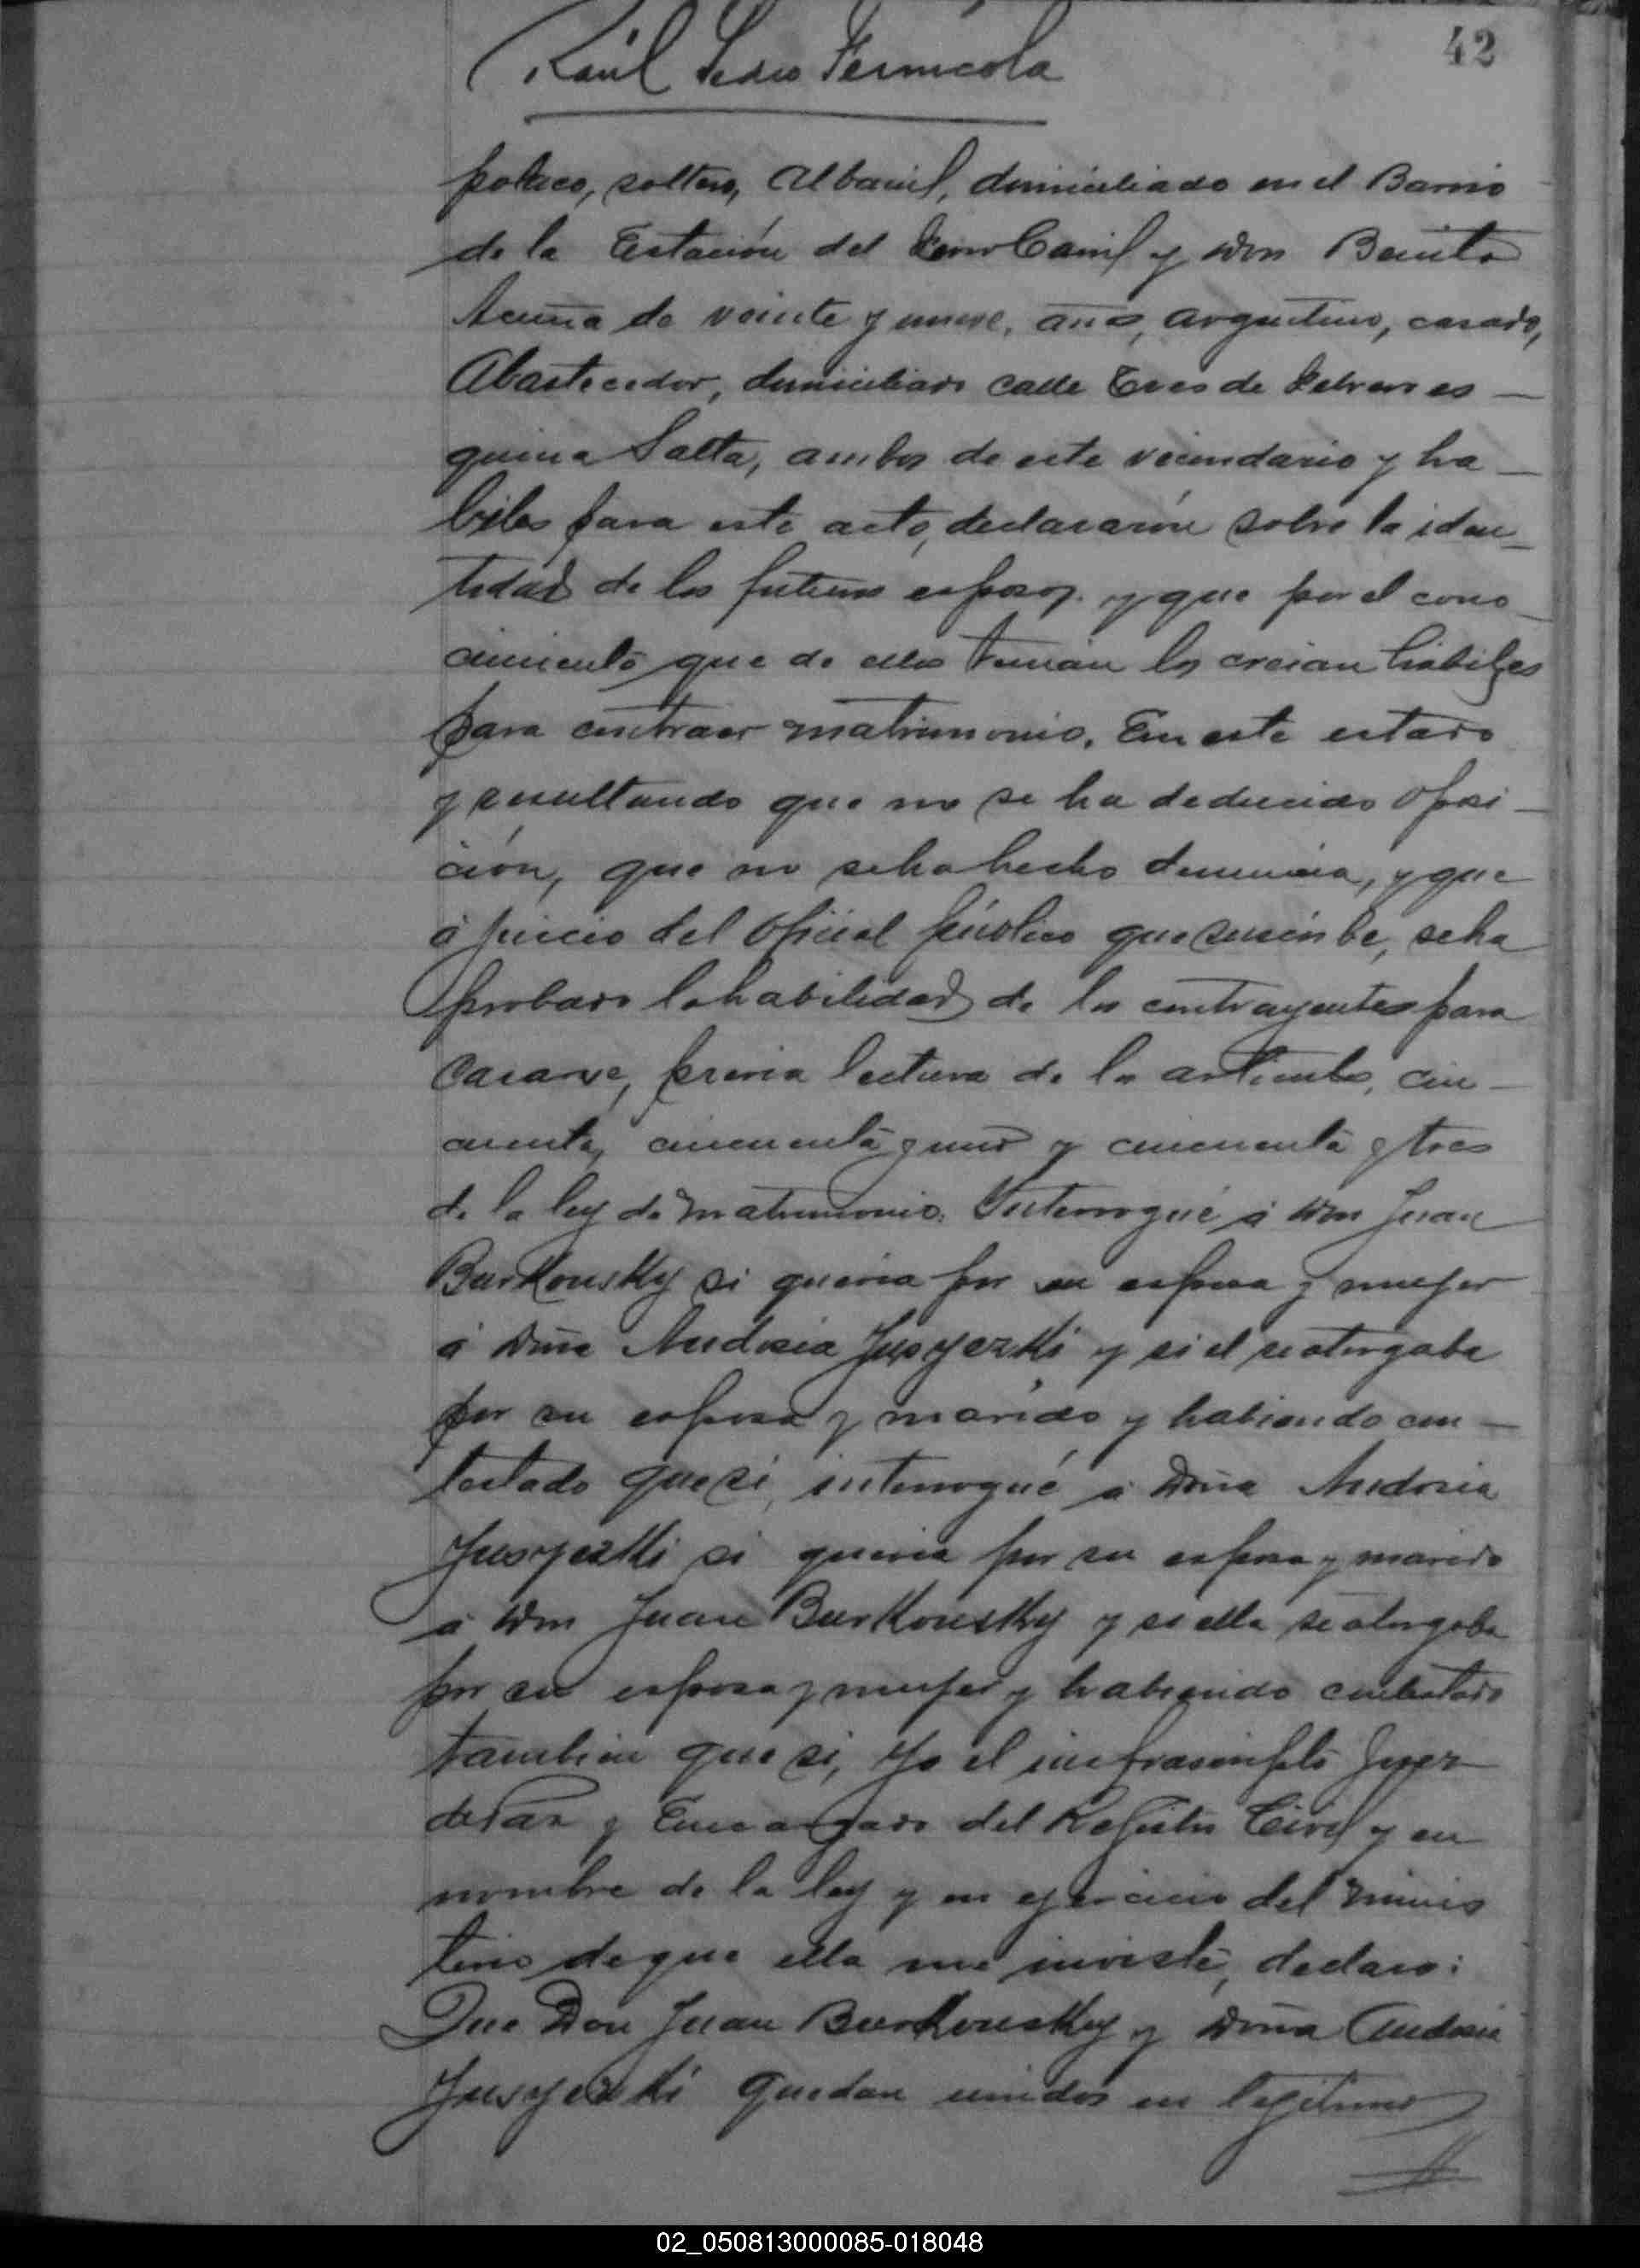 42
Raúl Pedro Fernicola
polaco, soltero, Albanil, domiciliado en el Barrio
de la Estación del FerroCarril y don Benito
Acuña de veinte y nueve, años, argentino, casado,
Abastecedor, domiciliado calle Tres de Febrero es
quina Salta, ambos de este vecindario y ha
biles para este acto, declararón sobre la iden
tidad de los futuros esposos y que por el cono
cimiento que de ellos tenian los creian habiles
para contraer matrimonio. En este estado
y resultando que no se ha deducido oposi
ción, que no se ha hecho denuncia, y que
á juicio del oficial público que suscribe, se ha
probado la habilidad de los contrayentes para
casarse, previa lectura de los articulos, cin
cuenta, cincuenta y uno y cincuenta y tres
de la ley de matrimonio. Interrogué á don Juan
Burkousky si queria por su esposa y mujer
á doña Audosia Jusyezki y si el se otorgaba
por su esposo y marido y habiendo con
testado que si, interrogué á Doña Audosia
Jusyezki si queria por su esposo y marido
á don Juan Burkousky y si ella se otorgaba
por su esposa y mujer y habiendo contestado
tambien que si, Yo el infrascripto Juez
de Paz y Encargado del Registro Civil y en
nombre de la ley y en ejercicio del minis
terio de que ella me inviste, declaro:
Que Don Juan Burkousky y Doña Audosia
Jusyezki quedan unidos en legitimo
02_050813000085-018048